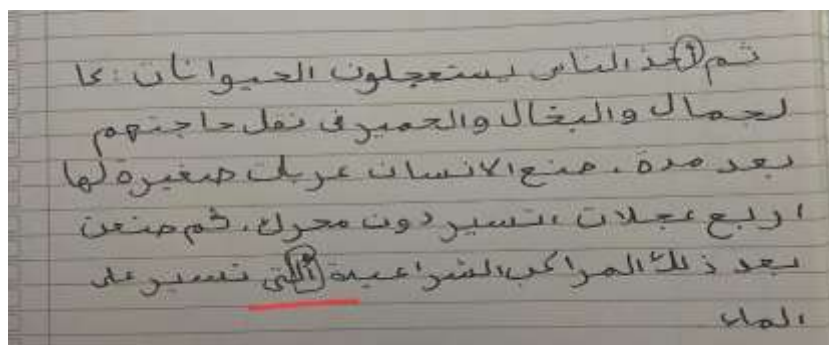 ثم أخذ الناس يستعجلون الحيوانات: كا
لجمال والبغال والحمير في نقل حاجتهم
بعد مدة، صنع الانسان عربات صغيرة لها
اربع عجلات اتسير دون محرك، ثم صنعت
بعد ذلك المراكب الشراعية التي تسير على
الماء.